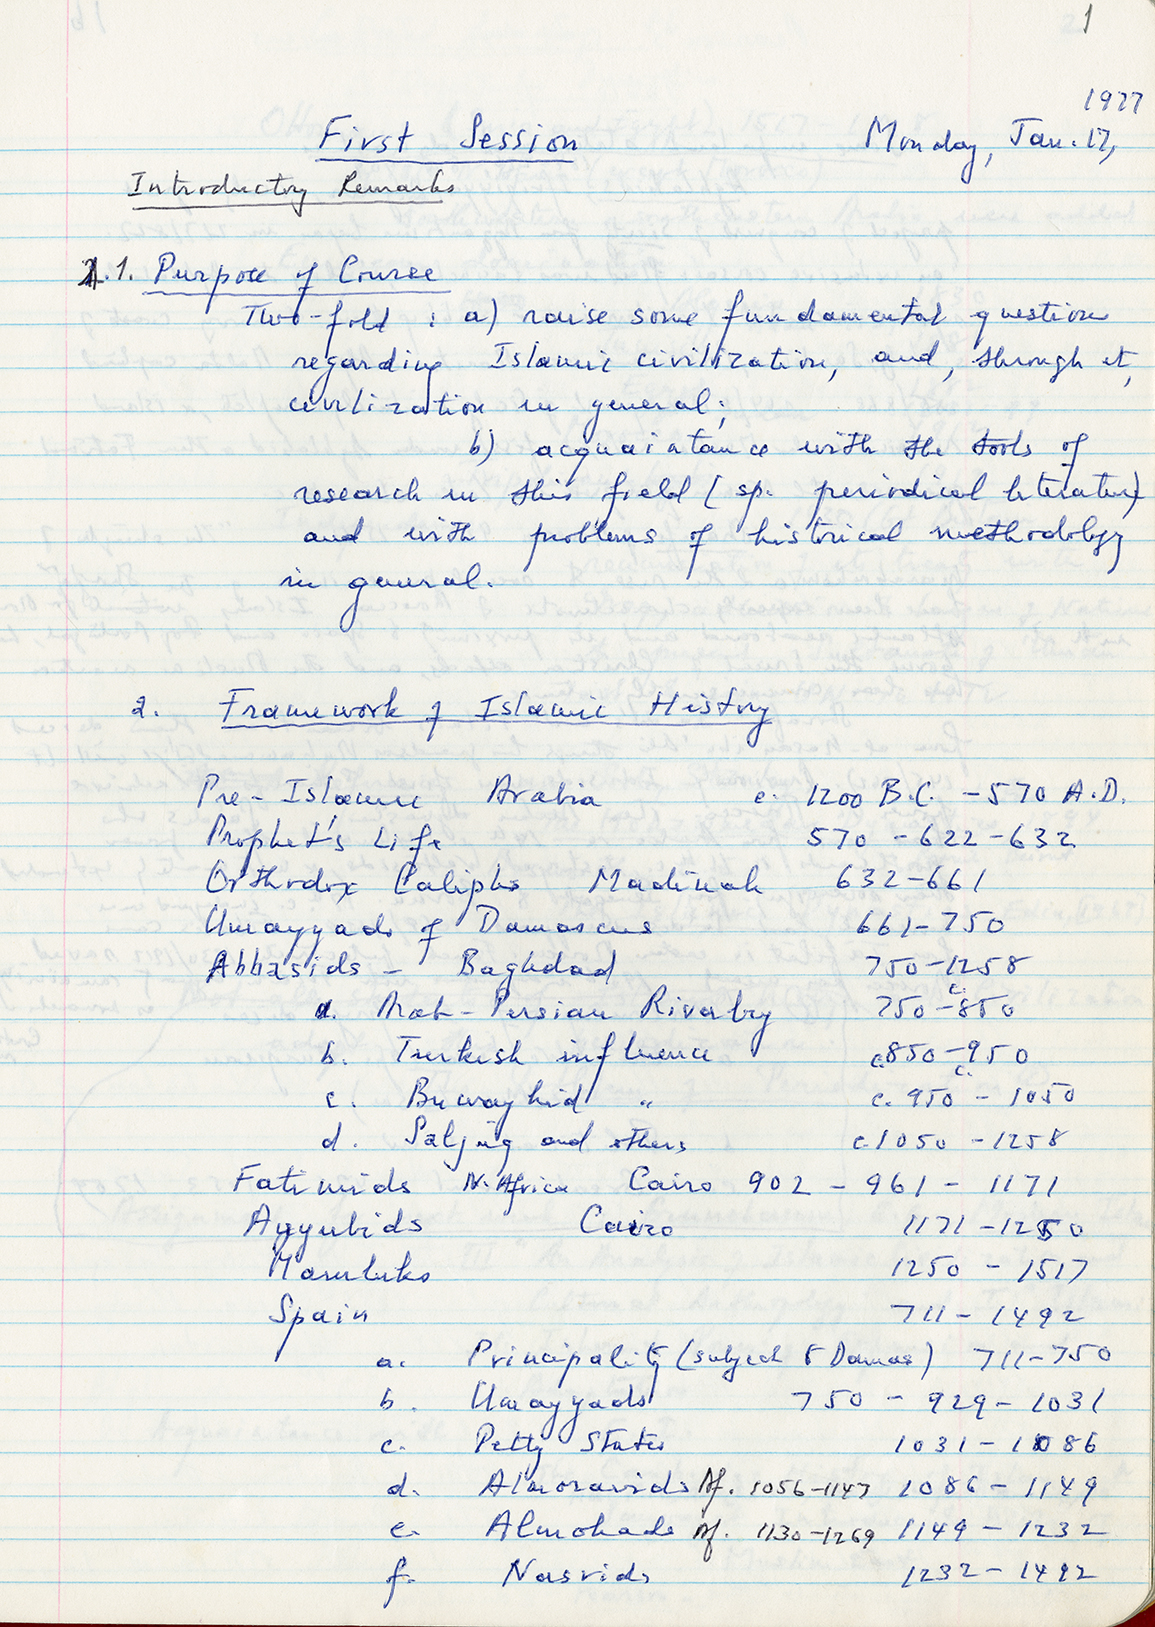 1
1977
First Session Monday, Jan. 17,
Introductory Remarks
1. Purpose of Course
Two-fold : a) raise some fundamental question
regarding Islamic civilization, and, through it,
civilization in general;
b) acquaintance with the tools of
research in this field (sp. periodical literature)
and with problems of historical methodology
in general.
2. Framework of Islamic History
Pre-Islamic Arabia c. 1200 B.C. - 570 A.D.
Prophet's Life 570 - 622 - 632
Orthodox Caliphs Madinah 632-661
Umayyads of Damascus 661-750
Abbasids - Baghdad 750-1258
a. Arab-Persian Rivalry 750 - c. 850
b. Turkish influence c. 850 - c. 950
c. Buwayhid " c. 950 - 1050
d. Saljuq and others c. 1050 - 1258
Fatimids N. Africa Cairo 902 - 961 - 1171
Ayyubids Cairo 1171 - 1250
Mamluks 1250 - 1517
Spain 711 - 1492
a. Principality (subject to Damas) 711-750
b. Umayyads 750 - 929 - 1031
c. Petty States 1031 - 1086
d. Almoravids Af. 1056-1147 1086 - 1149
e. Almohads Af. 1130-1269 1149 - 1232
f. Nasrids 1232 - 1492